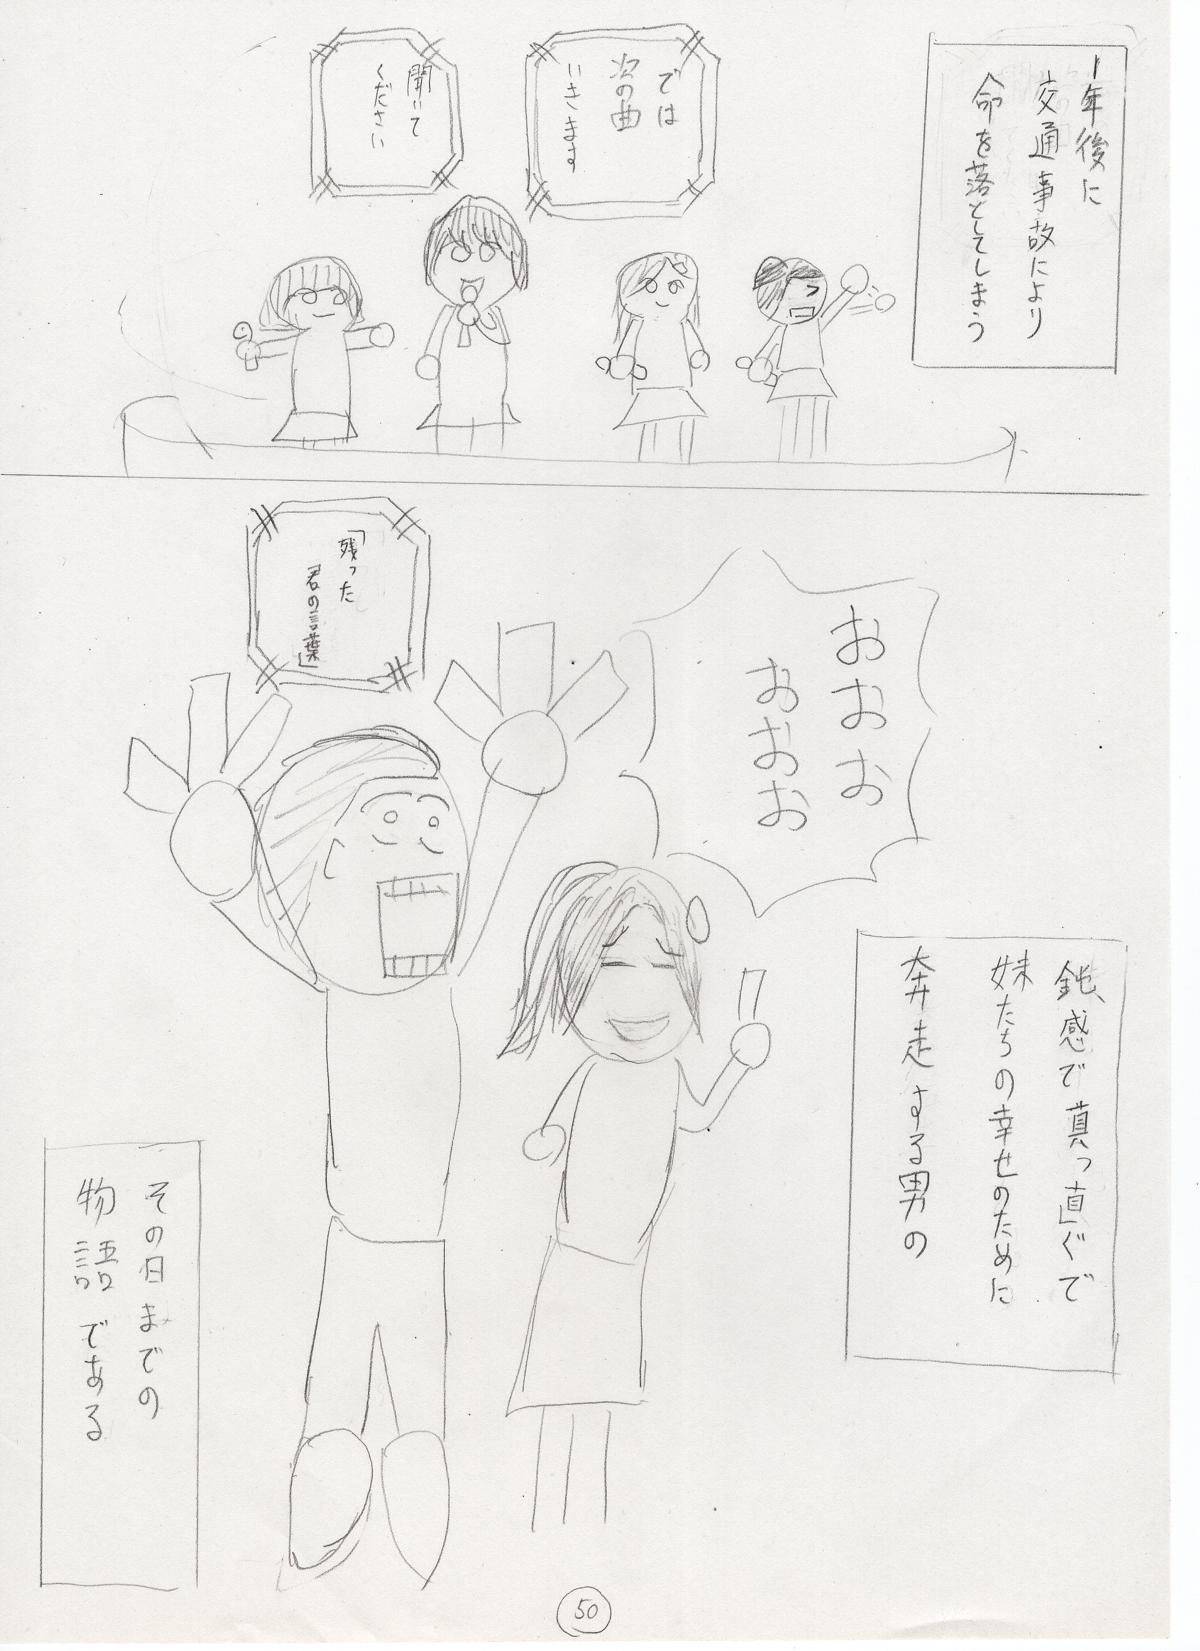 1年後に
交通事故により
命を落としてしまう
では
次の曲
いきます
聞いて
ください
「残った
君の言葉」
おおお
おおお
鈍感で真っ直ぐで
妹たちの幸せのために
奔走する男の
その日までの
物語である
50